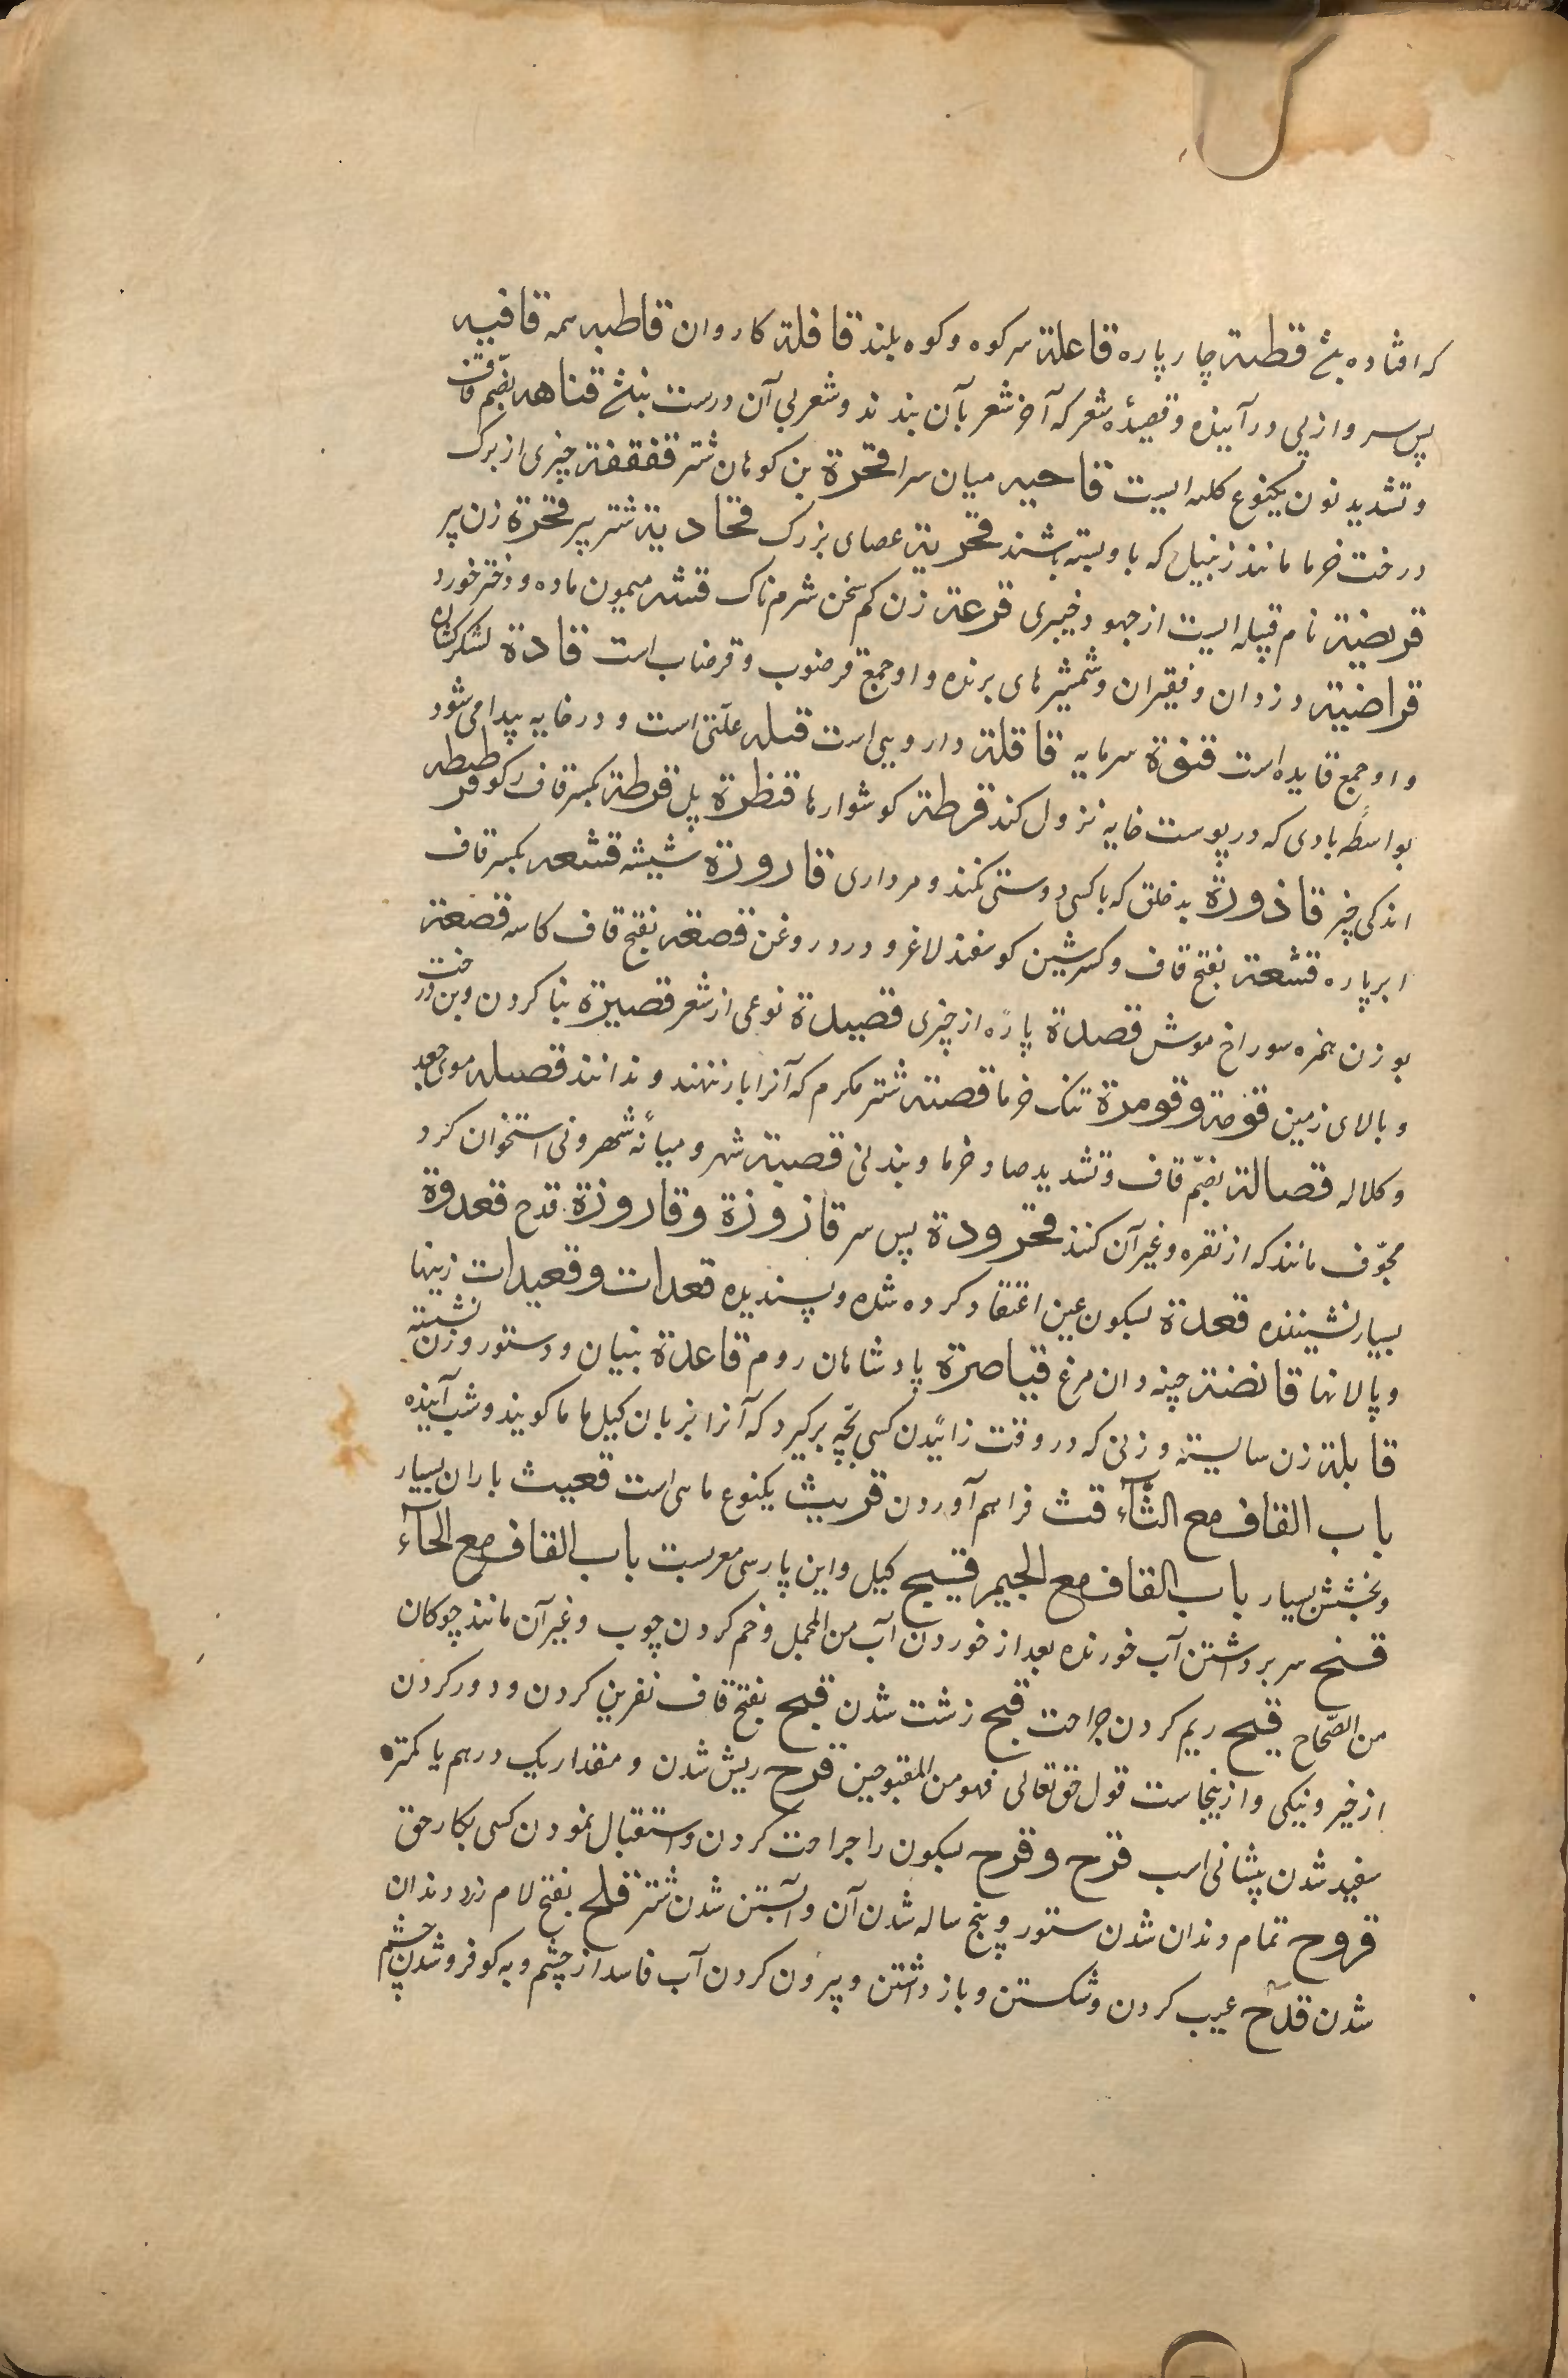 که افتاده بشخ قطنة چار پاره قاعلة سر کوه و کوه بلند قافلة کاروان قاطبه همه قافیه
پس سر و از پی در آینده و قصیدهٔ شعر که آخر شعر بآن بندند و شعر بی آن درست بنشخ قناهه بضم قاف
و تشدید نون یکنوع کلاه ایست قاحیه میان سرا قحرة بن کوهان شتر قفقفة چیزی از برک
درخت خرما مانند زنبیل که باو بسته باشند قحریة عصای بزرک قحادیة شتر پیر قحرة زن پیر
قریضة نام قبیله ایست از جهود خیبری قرعة زن کم سخن شرمناک قشه میمون ماده و دختر خورد
قراضبة دزدان و فقیران و شمشیرهای برنده و او جمع قرضوب و قرضاب است قادة لشکرکشان
و او جمع قایده است قنوة سرمایه قاقلة دارویی است قبله علتی است و در خایه پیدا می شود
بواسطه بادی که در پوست خایه نزول کند قرطة کوشوارها قنطرة پل قرطة بکسر قاف رکو قرطبطه
اندکی چیز قاذورة بد خلق که با کسی دوستی نکند و مرداری قارورة شیشه قشعه بکسر قاف
ابر پاره قشعة بفتح قاف و کسر شین کوسفند لاغر و درد روغن قصعة بفتح قاف کاسه قصعة
بوزن همزه سوراخ موش قصدة پاره از چیزی قصیدة نوعی از شعر قصیرة بنا کردن و بن درخت
و بالای زمین قومة و قومرة تنک خرما قصیة شتر مکرم که آنرا بار ننهند و ندانند قصیله موی جعد
و کلاله قصالة بضم قاف و تشدید صاد خرما و بندنی قصبة شهر و میانهٔ شهر و نی استخوان کرد
مجوف مانند که از نقره و غیر آن کنند قحرودة پس سر قازوزة و قاروزة قدح قعدوة
بسیار نشیننده قعدة بسکون عین اعتقاد کرده شده و پسندیده قعدات و قعیدات زینها
و پالانها قانضة چینه دان مرغ قیاصرة پادشاهان روم قاعدة بنیان و دستور و زن نشسته
قابلة زن سالسته و زنی که در وقت زائیدن کسی بچه برکیرد که آنرا بزبان کیل ماما کویند و شب آینده
باب القاف مع الثآء قث فراهم آوردن قریث یکنوع ماهی است قعیث باران بسیار
و بخشش بسیار باب القاف مع الجیم قیج کیل و این پارسی معربست باب القاف مع الحآء
قنح سر برداشتن آب خورنده بعد از خوردن آب من المجمل و خم کردن چوب و غیر آن مانند چوکان
من الصحاح قیح ریم کردن جراحت قبح زشت شدن قبح بفتح قاف نفرین کردن و دور کردن
از خیر و نیکی و ازینجاست قول حق تعالی فهو من المقبوحین قرح ریش شدن و مقدار یک درهم یا کمتره
سفید شدن پیشانی اسب قرح و قرح بسکون را جراحت کردن و استقبال نمودن کسی بکار حق
قروح تمام دندان شدن ستور و پنج ساله شدن آن و آبستن شدن شتر قلح بفتح لام زرد دندان
شدن قدح عیب کردن و شکستن و باز داشتن و بیرون کردن آب فاسد از چشم و به کو فرو شدن چشم